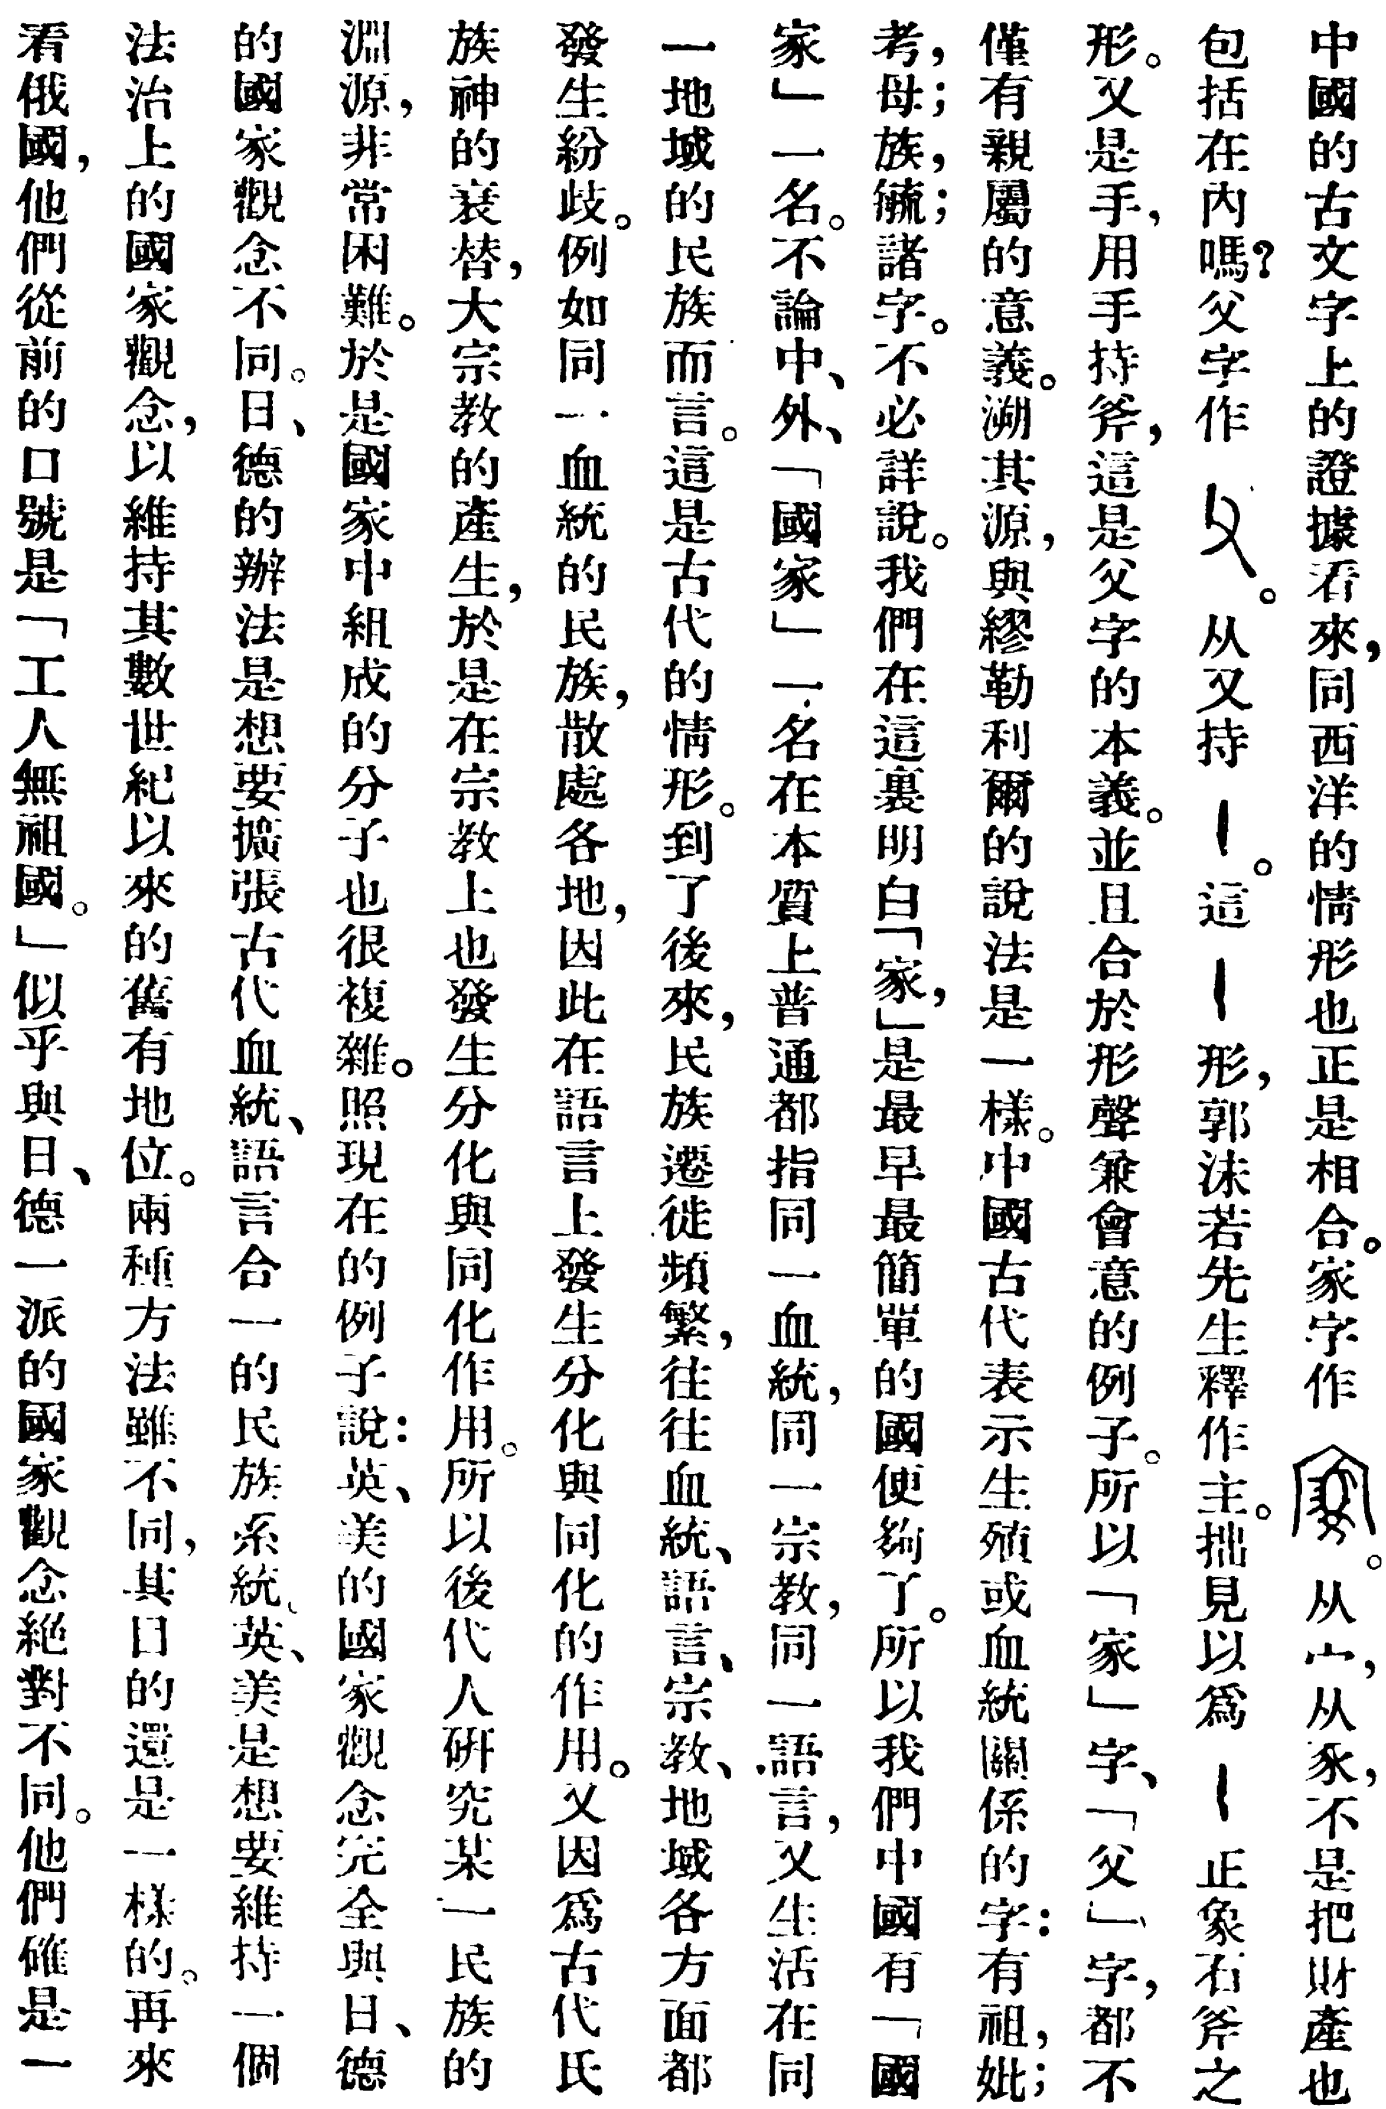 中國的古文字上的證據看來，同西洋的情形也正是相合。家字作。从宀，从豕，不是把財產也
包括在內嗎？父字作。从又持。這形，郭沫若先生釋作主。拙見以爲正象石斧之
形。又是手，用手持斧，這是父字的本義。並且合於形聲兼會意的例子。所以「家」字、「父」字，都不
僅有親屬的意義。溯其源，與繆勒利爾的說法是一樣。中國古代表示生殖或血統關係的字：有祖，妣；
考，母；族，毓；諸字。不必詳說。我們在這裏明白「家，」是最早最簡單的國便夠了。所以我們中國有「國
家」一名。不論中、外、「國家」一名在本質上普通都指同一血統，同一宗教，同一語言，又生活在同
一地域的民族而言。這是古代的情形。到了後來，民族遷徙頻繁，往往血統、語言、宗教、地域各方面都
發生紛歧。例如同一血統的民族，散處各地，因此在語言上發生分化與同化的作用。又因爲古代氏
族神的衰替，大宗教的產生，於是在宗教上也發生分化與同化作用。所以後代人研究某一民族的
淵源，非常困難。於是國家中組成的分子也很複雜。照現在的例子說：英、美的國家觀念完全與日、德
的國家觀念不同。日、德的辦法是想要擴張古代血統、語言合一的民族系統、英、美是想要維持一個
法治上的國家觀念，以維持其數世紀以來的舊有地位。兩種方法雖不同，其目的還是一樣的。再來
看俄國，他們從前的口號是「工人無祖國。」似乎與日、德一派的國家觀念絕對不同。他們確是一